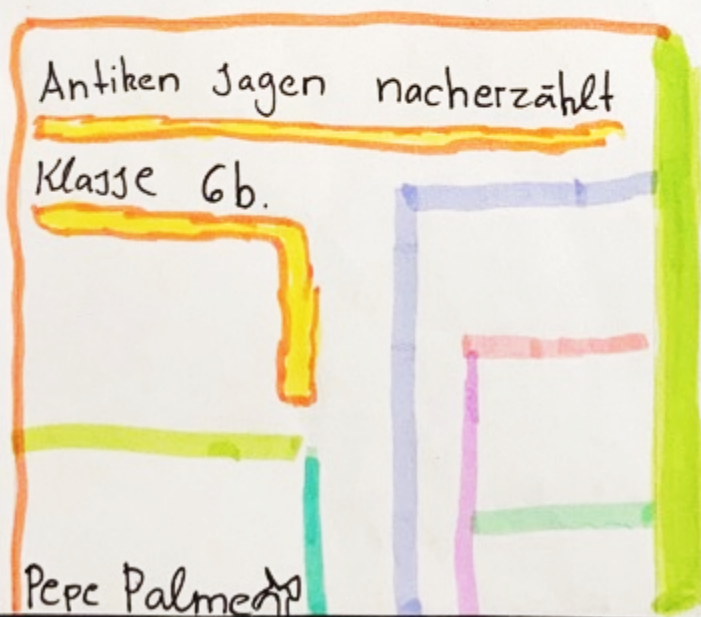 Antiken Sagen nacherzählt
Klasse 6b.
Pepe Palme